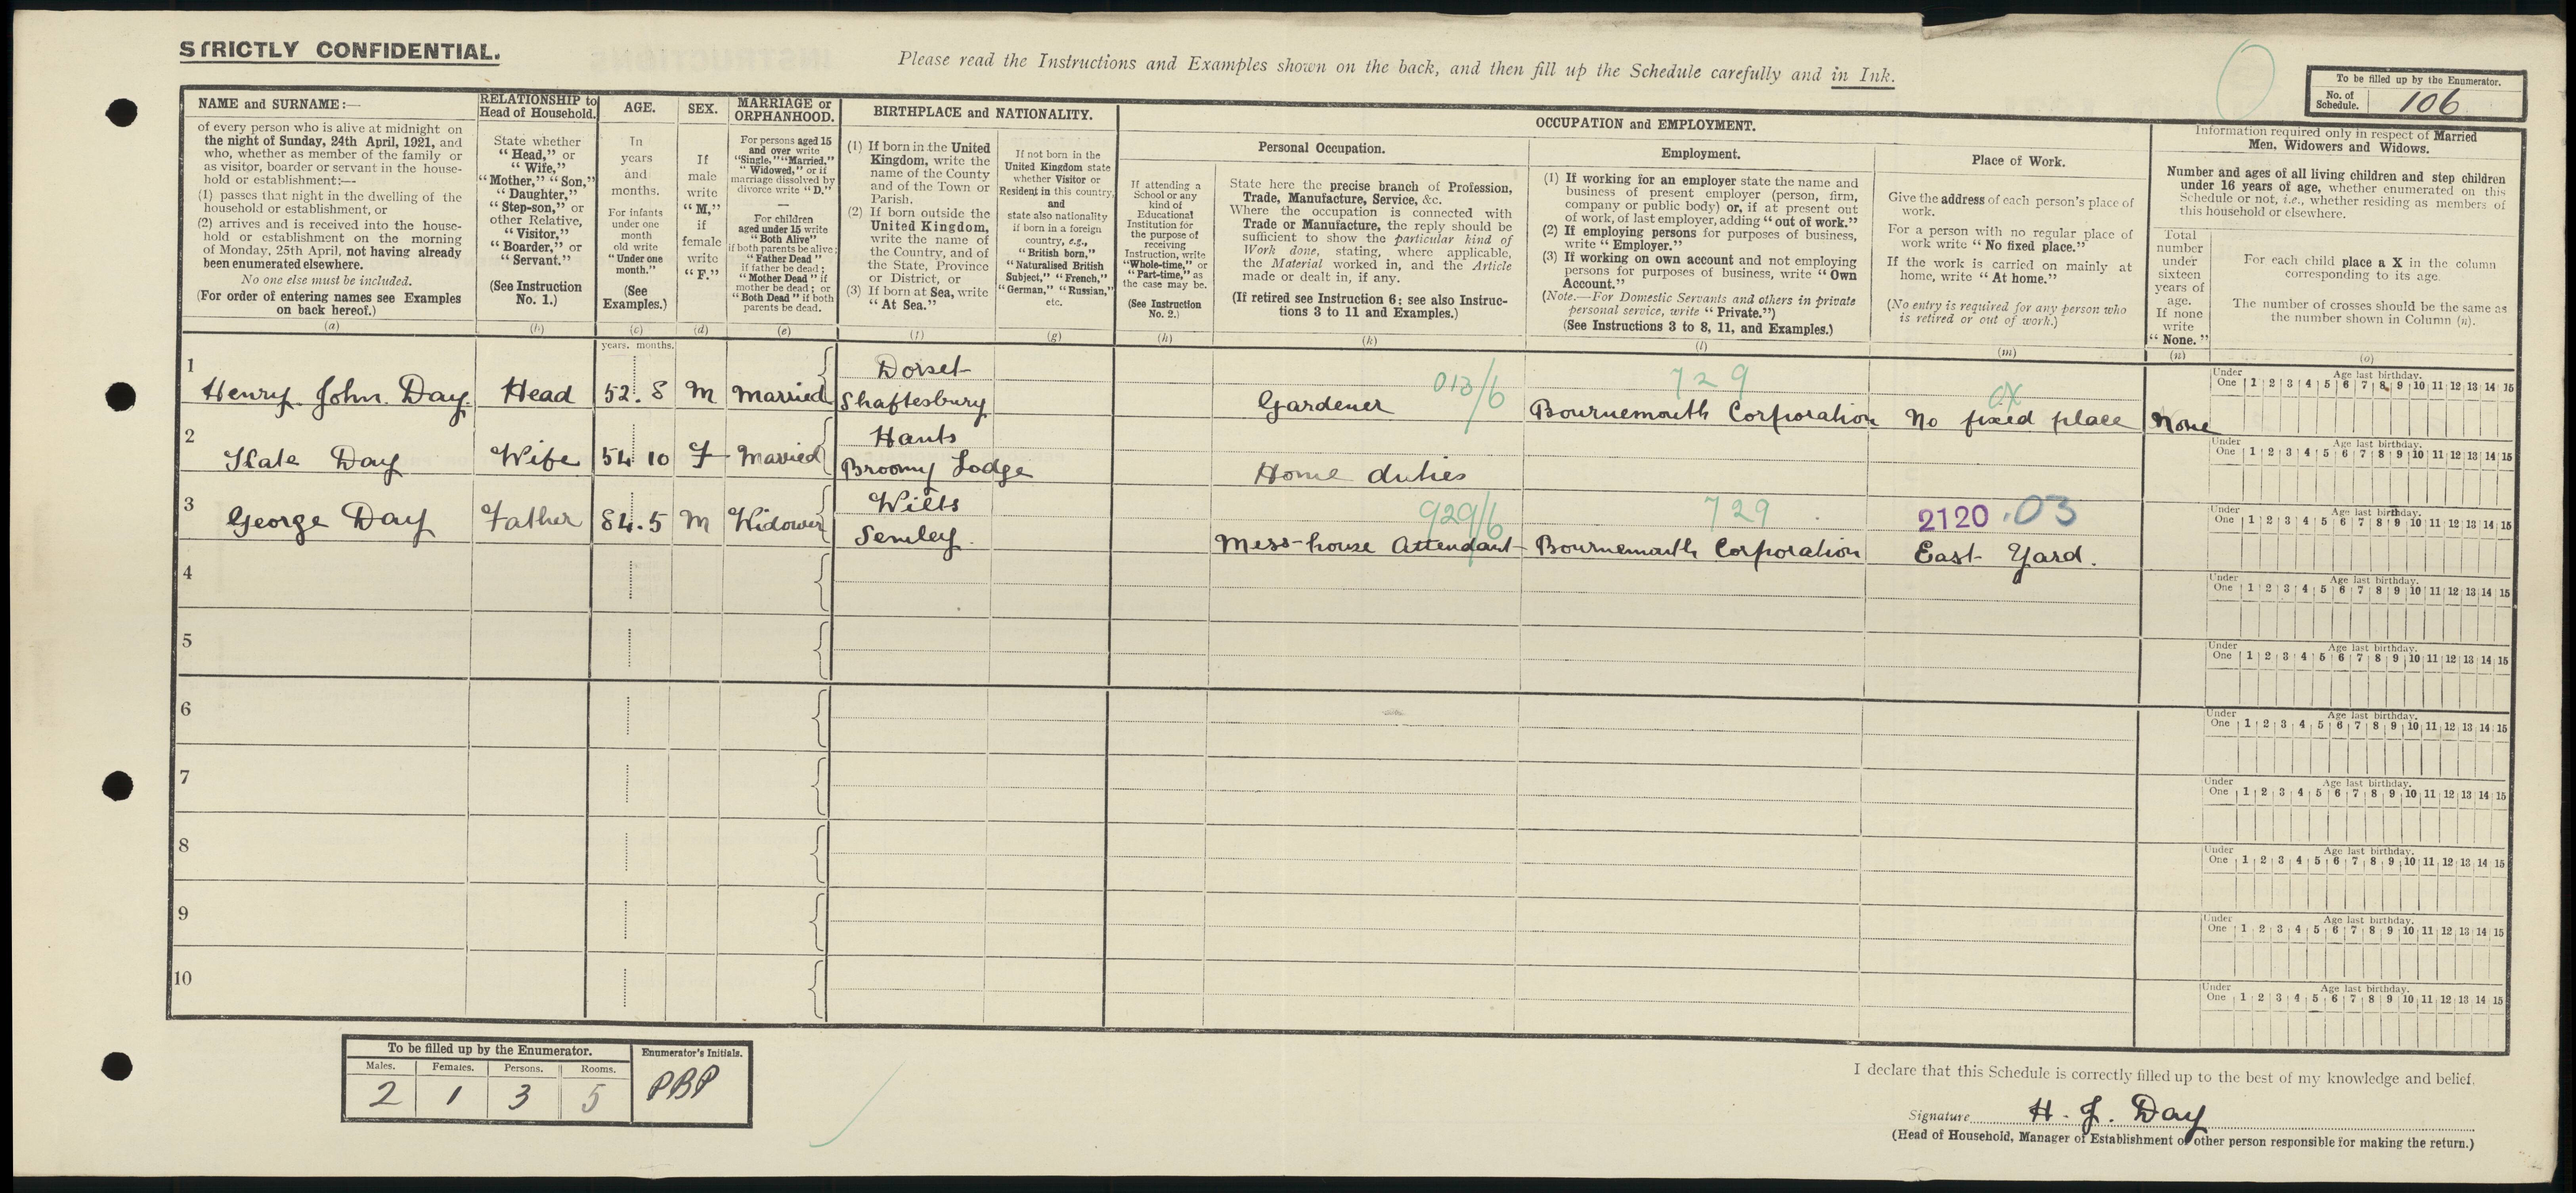 STRICTLY CONFIDENTIAL.
Please read the Instructions and Examples shown on the back, and then fill up the Schedule carefully and in Ink.
To be filled up by the Enumerator.
No. of Schedule. 106
NAME and SURNAME:—
of every person who is alive at midnight on
the night of Sunday, 24th April, 1921, and
who, whether as member of the family or
as visitor, boarder or servant in the house-
hold or establishment:—
(1) passes that night in the dwelling of the
household or establishment, or
(2) arrives and is received into the house-
hold or establishment on the morning
of Monday, 25th April, not having already
been enumerated elsewhere.
No one else must be included.
(For order of entering names see Examples
on back hereof.)
(a)
RELATIONSHIP to
Head of Household.
State whether
"Head," or
"Wife,"
"Mother," "Son,"
"Daughter,"
"Step-son," or
other Relative,
"Visitor,"
"Boarder," or
"Servant."
(See Instruction
No. 1.)
(b)
AGE.
In
years
and
months.
For infants
under one
month
old write
"Under one
month."
(See
Examples.)
(c)
SEX.
If
male
write
"M,"
if
female
write
"F."
(d)
MARRIAGE or
ORPHANHOOD.
For persons aged 15
and over write
"Single," "Married,"
"Widowed," or if
marriage dissolved by
divorce write "D."
—
For children
aged under 15 write
"Both Alive"
if both parents be alive;
"Father Dead"
if father be dead;
"Mother Dead" if
mother be dead; or
"Both Dead" if both
parents be dead.
(e)
BIRTHPLACE and NATIONALITY.
(1) If born in the United
Kingdom, write the
name of the County
and of the Town or
Parish.
(2) If born outside the
United Kingdom,
write the name of
the Country, and of
the State, Province
or District, or
(3) If born at Sea, write
"At Sea."
(f)
If not born in the
United Kingdom state
whether Visitor or
Resident in this country,
and
state also nationality
if born in a foreign
country, e.g.,
"British born,"
"Naturalised British
Subject," "French,"
"German," "Russian,"
etc.
(g)
OCCUPATION and EMPLOYMENT.
If attending a
School or any
kind of
Educational
Institution for
the purpose of
receiving
Instruction, write
"Whole-time," or
"Part-time," as
the case may be.
(See Instruction
No. 2.)
(h)
Personal Occupation.
State here the precise branch of Profession,
Trade, Manufacture, Service, &c.
Where the occupation is connected with
Trade or Manufacture, the reply should be
sufficient to show the particular kind of
Work done, stating, where applicable,
the Material worked in, and the Article
made or dealt in, if any.
(If retired see Instruction 6; see also Instruc-
tions 3 to 11 and Examples.)
(k)
Employment.
(1) If working for an employer state the name and
business of present employer (person, firm,
company or public body) or, if at present out
of work, of last employer, adding "out of work."
(2) If employing persons for purposes of business,
write "Employer."
(3) If working on own account and not employing
persons for purposes of business, write "Own
Account."
(Note.—For Domestic Servants and others in private
personal service, write "Private.")
(See Instructions 3 to 8, 11, and Examples.)
(l)
Place of Work.
Give the address of each person's place of
work.
For a person with no regular place of
work write "No fixed place."
If the work is carried on mainly at
home, write "At home."
(No entry is required for any person who
is retired or out of work.)
(m)
Information required only in respect of Married
Men, Widowers and Widows.
Number and ages of all living children and step children
under 16 years of age, whether enumerated on this
Schedule or not, i.e., whether residing as members of
this household or elsewhere.
Total
number
under
sixteen
years of
age.
If none
write
"None."
(n)
For each child place a X in the column
corresponding to its age.
The number of crosses should be the same as
the number shown in Column (n).
(o)
years. months.
1
Henry John Day. Head 52. 8 M Married Dorset Shaftesbury Gardener 013/6 Bournemouth Corporation 729 No fixed place None
Under One Age last birthday. 1 2 3 4 5 6 7 8 9 10 11 12 13 14 15
2
Kate Day Wife 54 10 F Married Hants Broomy Lodge Home duties
Under One Age last birthday. 1 2 3 4 5 6 7 8 9 10 11 12 13 14 15
3
George Day Father 84.5 M Widower Wilts Semley. Mess-house Attendant 929/6 Bournemouth Corporation 729 2120 .03 East Yard.
Under One Age last birthday. 1 2 3 4 5 6 7 8 9 10 11 12 13 14 15
4
Under One Age last birthday. 1 2 3 4 5 6 7 8 9 10 11 12 13 14 15
5
Under One Age last birthday. 1 2 3 4 5 6 7 8 9 10 11 12 13 14 15
6
Under One Age last birthday. 1 2 3 4 5 6 7 8 9 10 11 12 13 14 15
7
Under One Age last birthday. 1 2 3 4 5 6 7 8 9 10 11 12 13 14 15
8
Under One Age last birthday. 1 2 3 4 5 6 7 8 9 10 11 12 13 14 15
9
Under One Age last birthday. 1 2 3 4 5 6 7 8 9 10 11 12 13 14 15
10
Under One Age last birthday. 1 2 3 4 5 6 7 8 9 10 11 12 13 14 15
To be filled up by the Enumerator.
Males. Females. Persons. Rooms.
2 1 3 5
Enumerator's Initials.
PBP
I declare that this Schedule is correctly filled up to the best of my knowledge and belief.
Signature H. J. Day
(Head of Household, Manager of Establishment or other person responsible for making the return.)